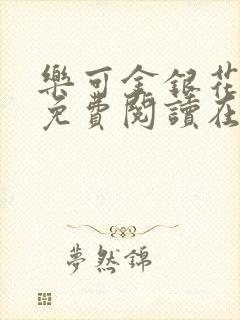 樂可金銀花
免費閱讀在
夢然錦